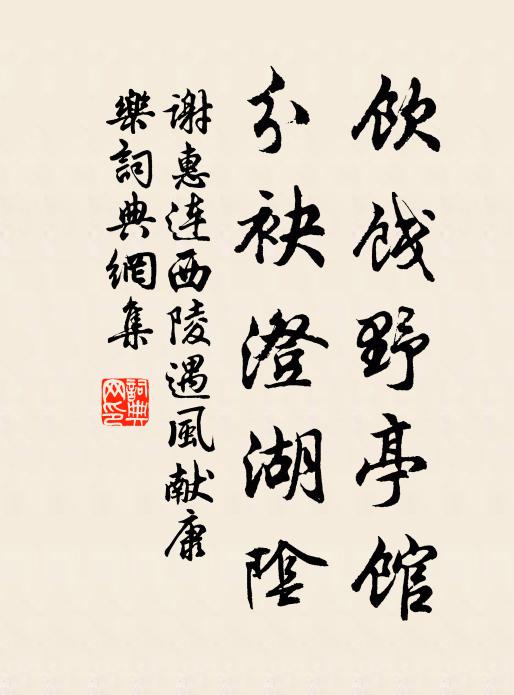 飲餞野亭館
分袂澄湖陰
谢惠连西陵遇風献康
樂詞典網集
詞典
网印